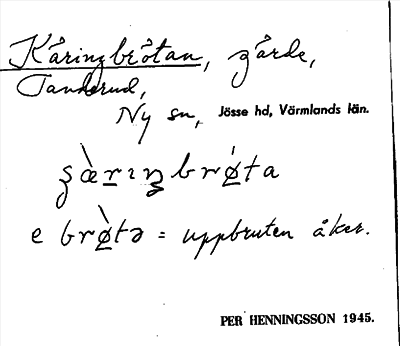 Käringbråtan, gärde,
Tanderud,
Ny sn, Jösse hd, Värmlands län.
e = uppbruten åker.
PER HENNINGSSON 1945.